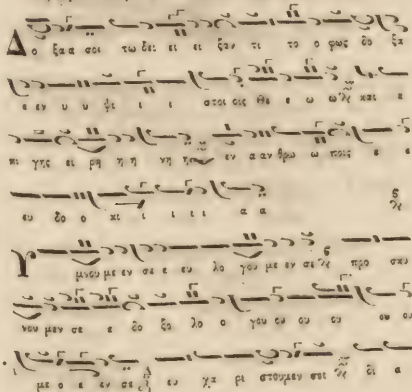 Δ ο ξα α σοι τω δει ει ει ξαν τι το ο φως δο ξα
ε εν υ υ ψι ι ι στοις οις Θε ε ω ω και ε
πι γης ει ρη η η νη η εν α αν θρω ω ποις ε ε
ευ δο ο κι ι ι ι α α
Υ μνου με εν σε ε ευ λο γου με εν σε προ σκυ
νου μεν σε ε δο ξο λο ο γου ου ου ου ου ου
με ο ε εν σε ευ χα ρι στουμεν σοι δι α